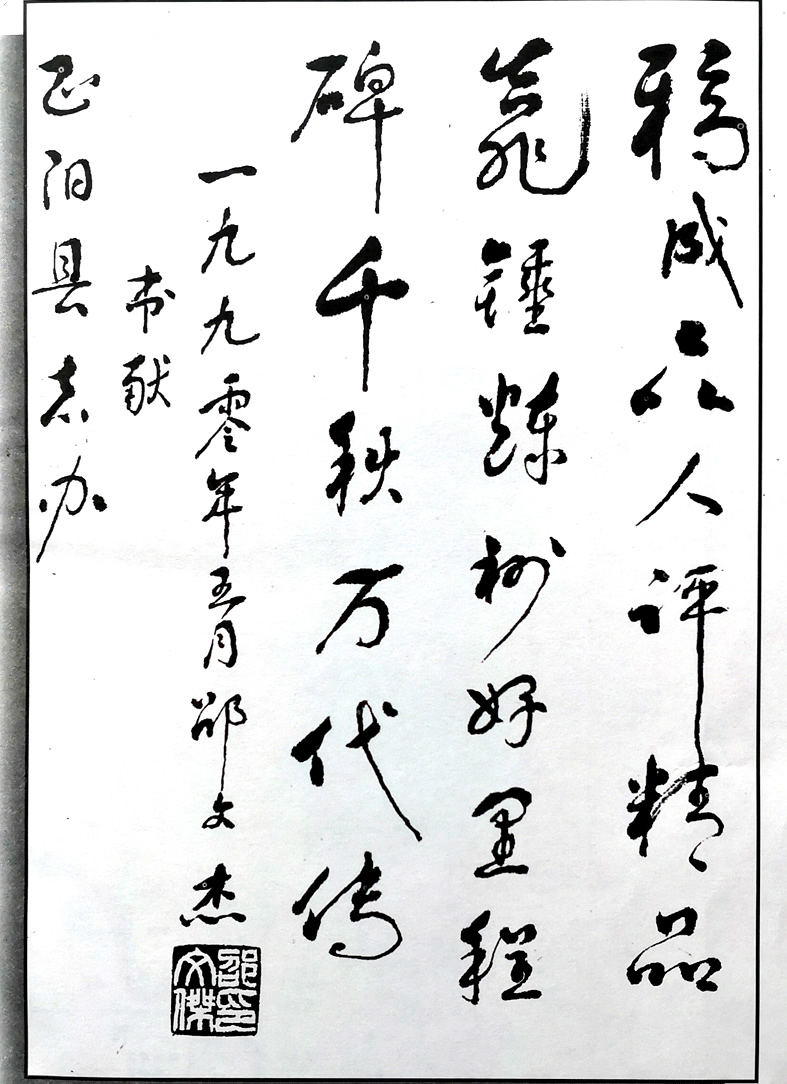 稿成众人评精品
靠锤炼树好里程
碑千秋万代传
一九九零年五月邵文杰
书献
正阳县志办
邵印
文傑